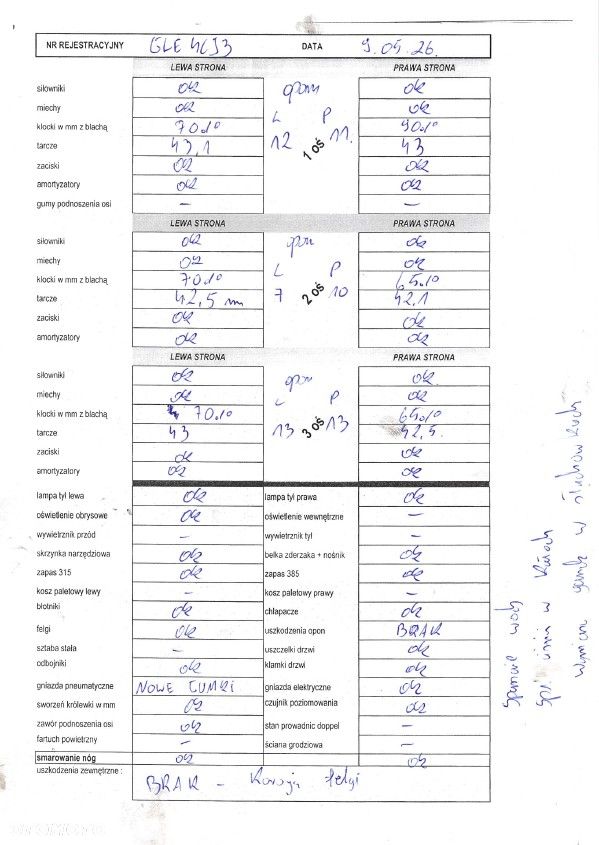 NR REJESTRACYJNY GLE DATA 9.05.26.
LEWA STRONA PRAWA STRONA
siłowniki ok opony ok
miechy ok L P ok
klocki w mm z blachą 70% 12 1 OŚ 11. 90%
tarcze 43,1 43
zaciski ok ok
amortyzatory ok ok
gumy podnoszenia osi – –
LEWA STRONA PRAWA STRONA
siłowniki ok opon ok
miechy ok L P ok
klocki w mm z blachą 70% 7 2 OŚ 10 65%
tarcze 42,5 mm 42,1
zaciski ok ok
amortyzatory ok ok
LEWA STRONA PRAWA STRONA
siłowniki ok opon ok
miechy ok L P ok
klocki w mm z blachą 70% 13 3 OŚ 13 65%
tarcze 43 42,5.
zaciski ok ok
amortyzatory ok ok
lampa tył lewa ok lampa tył prawa ok
oświetlenie obrysowe ok oświetlenie wewnętrzne –
wywietrznik przód – wywietrznik tył –
skrzynka narzędziowa ok belka zderzaka + nośnik ok
zapas 315 ok zapas 385 ok
kosz paletowy lewy – kosz paletowy prawy –
błotniki ok chlapacze ok
felgi ok uszkodzenia opon BRAK
sztaba stała – uszczelki drzwi ok
odbojniki ok klamki drzwi ok
gniazda pneumatyczne NOWE GUMKI gniazda elektryczne ok
sworzeń królewki w mm ok czujnik poziomowania ok
zawór podnoszenia osi ok stan prowadnic doppel –
fartuch powietrzny – ściana grodziowa –
smarowanie nóg ok ok
uszkodzenia zewnętrzne :
BRAK – Korozja felgi
wody
w
Wymiana gumek w